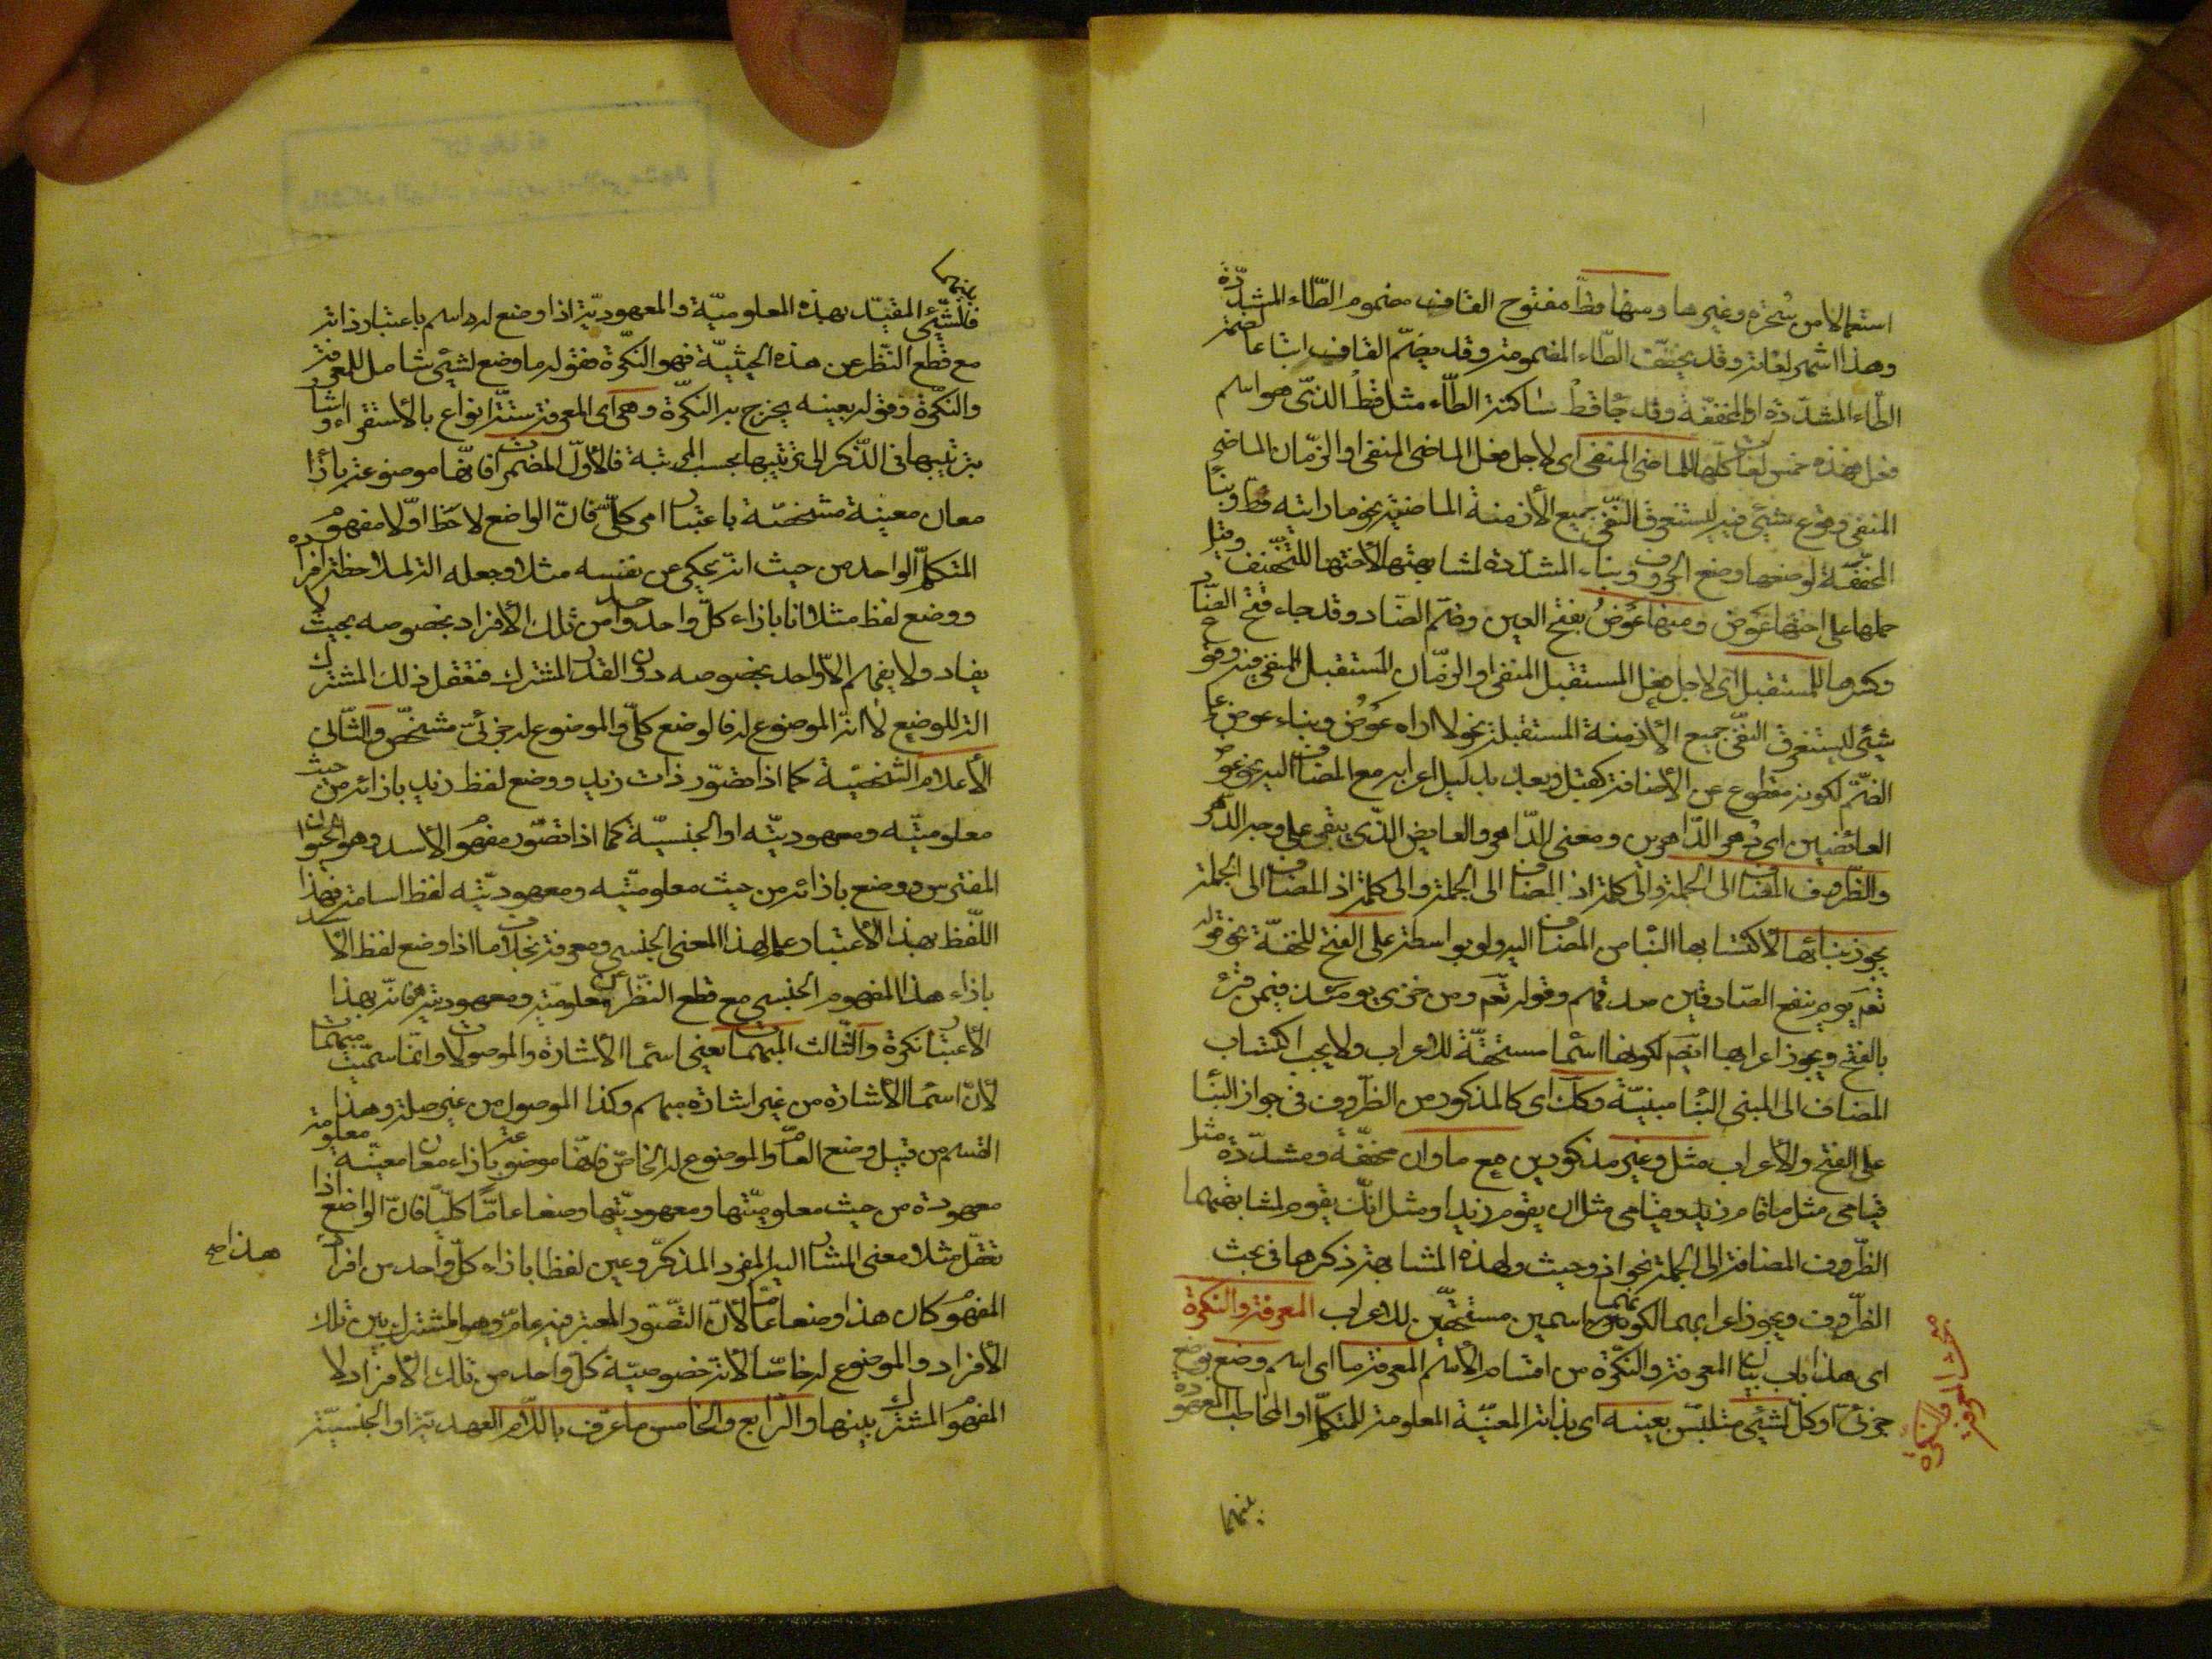 استعمالا من سُحرة وغيرها ومنها قطّ مفتوح القاف مضموم الطّاء المشدّدة
وهذا اشهر لغاته وقد يخفّف الطّاء المضمومة وقد يضمّ القاف اتباعا لضمة
الطّاء المشدّدة او المخففّة وقد جاء قطْ ساكنة الطّاء مثل قطْ الذّى هو اسم
فعل فهذه خمس لغات كلّها للماضى المنفى اى لاجل فعل الماضى المنفى او الزّمان الماضى
المنفى وقوع شيئ فيه ليستغرق النّفى جميع الأزمنة الماضية نحو ما رايته قطّ وبناء
المخففّة لوضعها وضع الحروف وبناء المشدّدة لمشابهتها لأختها المخففة وقيل
حملها على اختها عوض ومنها عَوضُ بفتح العين وضمّ الضّاد وقد جاء فتح الضّاد
وكسرها للمستقبل اى لاجل فعل المستقبل المنفى او الزّمان المستقبل المنفى فيه وقوع
شيئ ليستغرق النّفى جميع الأزمنة المستقبلة نحو لا اراه عَوضُ وبناء عوض على
الضّمّ لكونه مقطوع عن الأضافة كقبل وبعد بدليل اعرابه مع المضاف اليه نحو عوض
العائضين اى دهر الدّاهرين ومعنى الدّاهر والعايض الذّى يبقى على وجه الدّهر
والظّروف المضاف الى الجملة والى كلمة اذ المضاف الى الجملة والى كلمة اذ المضاف الى الجملة
يجوز بناءها لاكتسابها البناء من المضاف اليه ولو بواسطة على الفتح للخفّة نحو قوله
تعم يوم ينفع الصّادقين صدقهم وقوله تعم ومن خزى يومئذ فيمن قرء
بالفتح ويجوز اعرابها ايضم لكونها اسماء مستحقّة للاعراب ولا يجب اكتساب
المضاف الى المبنى البناء مبنيّة وكك اى كالمذكور من الظّروف فى جواز البناء
على الفتح والأعراب مثل وغير مذكورين مع ما وان مخففّة ومشدّدة مثل
قيامى مثل ما قام زيد وقيامى مثل ان يقوم زيد او مثل انّك يقوم لمشابهتهما
الظّروف المضافة الى الجملة نحو اذ وحيث ولهذه المشابهة ذكرها فى بحث
الظّروف ويجوز اعرابهما لكونهما اسمين مستحقّين للاعراب المعرفة والنّكرة
اى هذا باب بيان المعرفة والنّكرة من اقسام الأسم المعرفة ما اى اسم وضع بوضع
جزئى او كلّى لشيئ متلبّس بعينه اى بذاته المعيّنة المعلومة للمتكلّم او المخاطب المعهودة
بينهما
بينهما
فالشّيئ المقيّد بهذه المعلوميّة والمعهوديّة اذا وضع له اسم باعتبار ذاته
مع قطع النّظر عن هذه الحيثيّة فهو النّكرة فقوله ما وضع لشيئ شامل للمعرفة
والنّكرة وقوله بعينه يخرج به النّكرة وهى اى المعرفة ستّة انواع بالأستقراء واشار
بترتيبها فى الذّكر الى ترتيبها بحسب المرتبة فالأوّل المضمرات فانّها موضوعة بازاء
معان معينة مشخصّة باعتبار امر كلّى فانّ الواضع لاحظ اوّلا مفهوم
المتكلّم الواحد من حيث انّه يحكى عن نفسه مثلا وجعله الة لملاحظة افراده
ووضع لفظ مثلا انا بازاء كلّ واحد واحد من تلك الأفراد بخصوصه بحيث لا
يفاد ولا يفهم الاّ واحد بخصوصه دون القدر المشترك فتعقّل ذلك المشترك
الة للوضع لا انّه الموضوع له فالوضع كلّى والموضوع له جزئىّ مشخّص والثّانى
الأعلام الشّخصّية كما اذا تصّور ذات زيد ووضع لفظ زيد بازائه من حيث
معلوميّته ومعهوديتّه او الجنسيّة كما اذا تصّور مفهوم الأسد وهو الحيوان
المفترس ووضع بازائه من حيث معلوميّته ومعهوديّته لفظ اسامة فهذا
اللّفظ بهذا الأعتبار علم لهذا المعنى الجنسى ومعرفة بخلاف ما اذا وضع لفظ الأسد
بازاء هذا المفهوم الجنسى مع قطع النّظر عن معلوميّته ومعهوديّته فانّه بهذا
الأعتبار نكرة والثّالث المبهمات يعنى اسماء الأشارة والموصولات وانّما سمّيت مبهمات
لأنّ اسم الأشارة من غير اشارة مبهم وكذا الموصول من غير صلة وهذا
القسم من قبيل وضع العامّ والموضوع له الخاصّ فانّها موضوعة بازاء معان معينّة معلومة
معهودة من حيث معلوميّتها ومعهوديّتها وضعا عامّا كلّيّا فانّ الواضع اذا
تعقّل مثلا معنى المشار اليه المفرد المذكّر وعين لفظا بازاء كلّ واحد من افراد هذا صح
المفهوم كان هذا وضعا عامّا لأنّ التّصّور المعتبر فيه عامّ وهو المشترك بين تلك
الأفراد والموضوع له خاصّا لأنّه خصوصيّة كلّ واحد من تلك الأفراد لا
المفهوم المشترك بينها والرّابع والخامس ما عرّف باللّام العهديّة او الجنسيّة